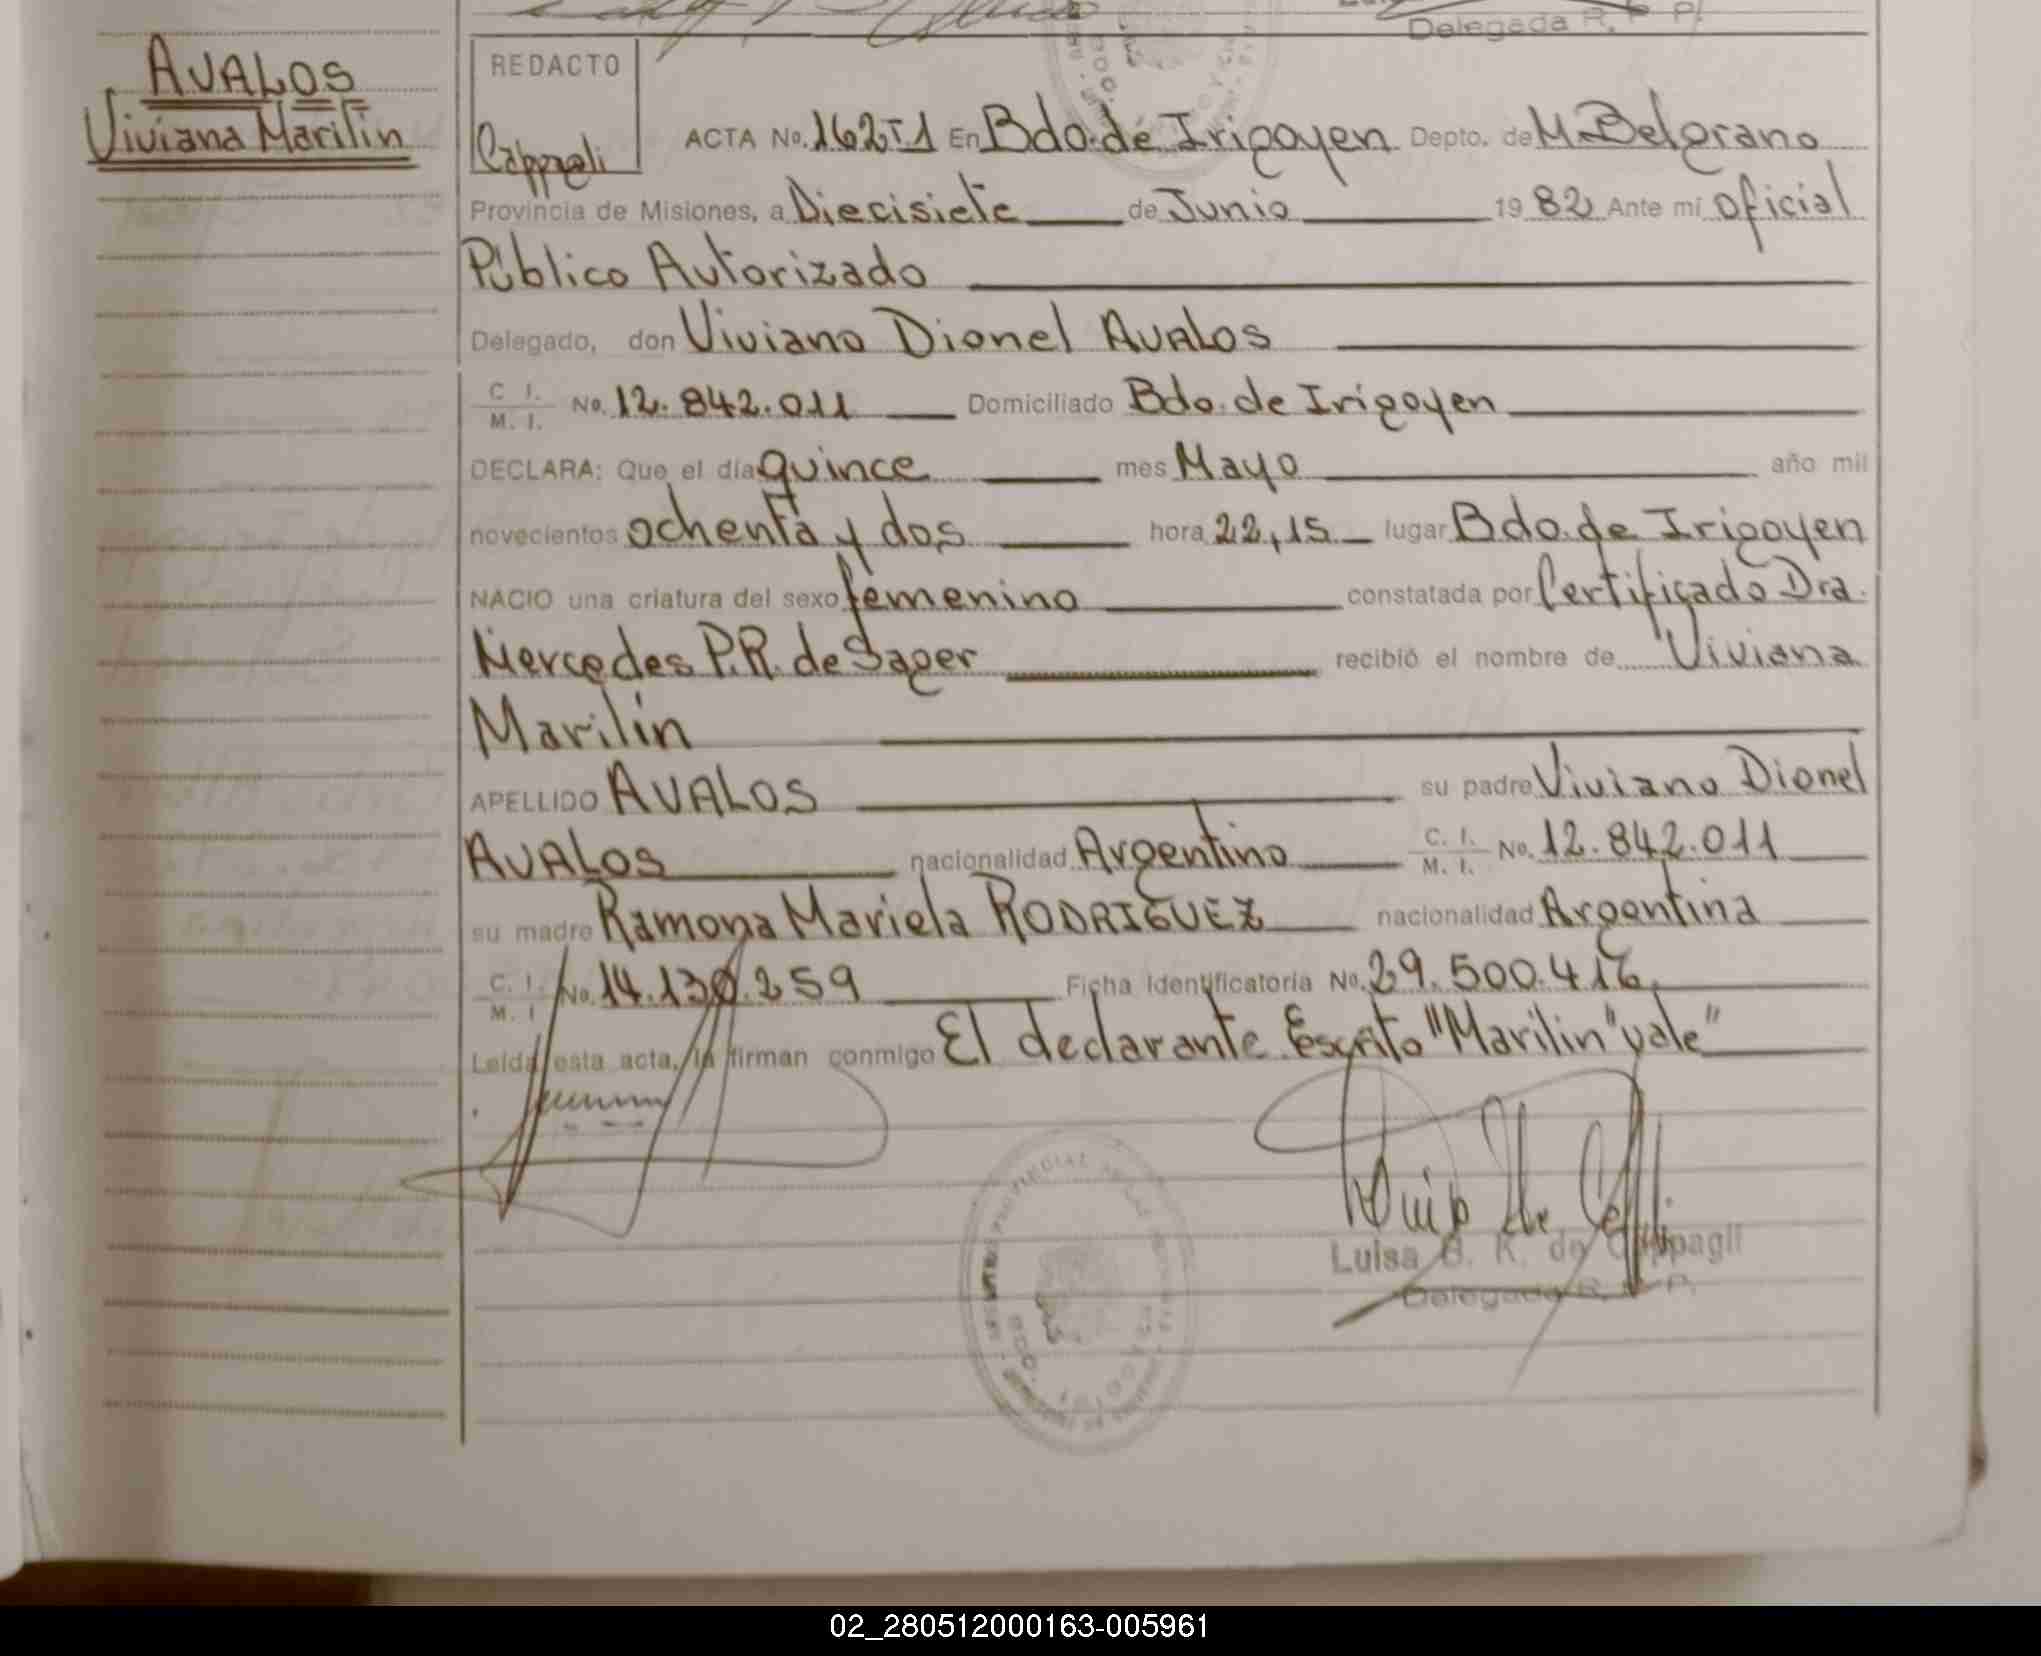 Delegada R. P. P.
AVALOS
Viviana Marilín
REDACTO
Cappagli
ACTA No. 162T1 En Bdo. de Irigoyen Depto. de M. Belgrano
Provincia de Misiones, a Diecisiete de Junio 19 82 Ante mí oficial
Público Autorizado
Delegado, don Viviano Dionel AVALOS
C. I.
M. I. No. 12.842.011 Domiciliado Bdo. de Irigoyen
DECLARA: Que el día quince mes Mayo año mil
novecientos ochenta y dos hora 22,15 lugar Bdo. de Irigoyen
NACIO una criatura del sexo femenino constatada por Certificado Dra.
Mercedes P.R. de Sager recibió el nombre de Viviana
Marilín
APELLIDO AVALOS su padre Viviano Dionel
AVALOS nacionalidad Argentino C. I. M. I. No. 12.842.011
su madre Ramona Mariela RODRIGUEZ nacionalidad Argentina
C. I.
M. I. No. 14.130.259 Ficha Identificatoria No. 29.500.416
Leída esta acta, la firman conmigo El declarante. Escrito "Marilin" vale"
Luisa G. K. de Cappagli
Delegada R. P. P.
02_280512000163-005961